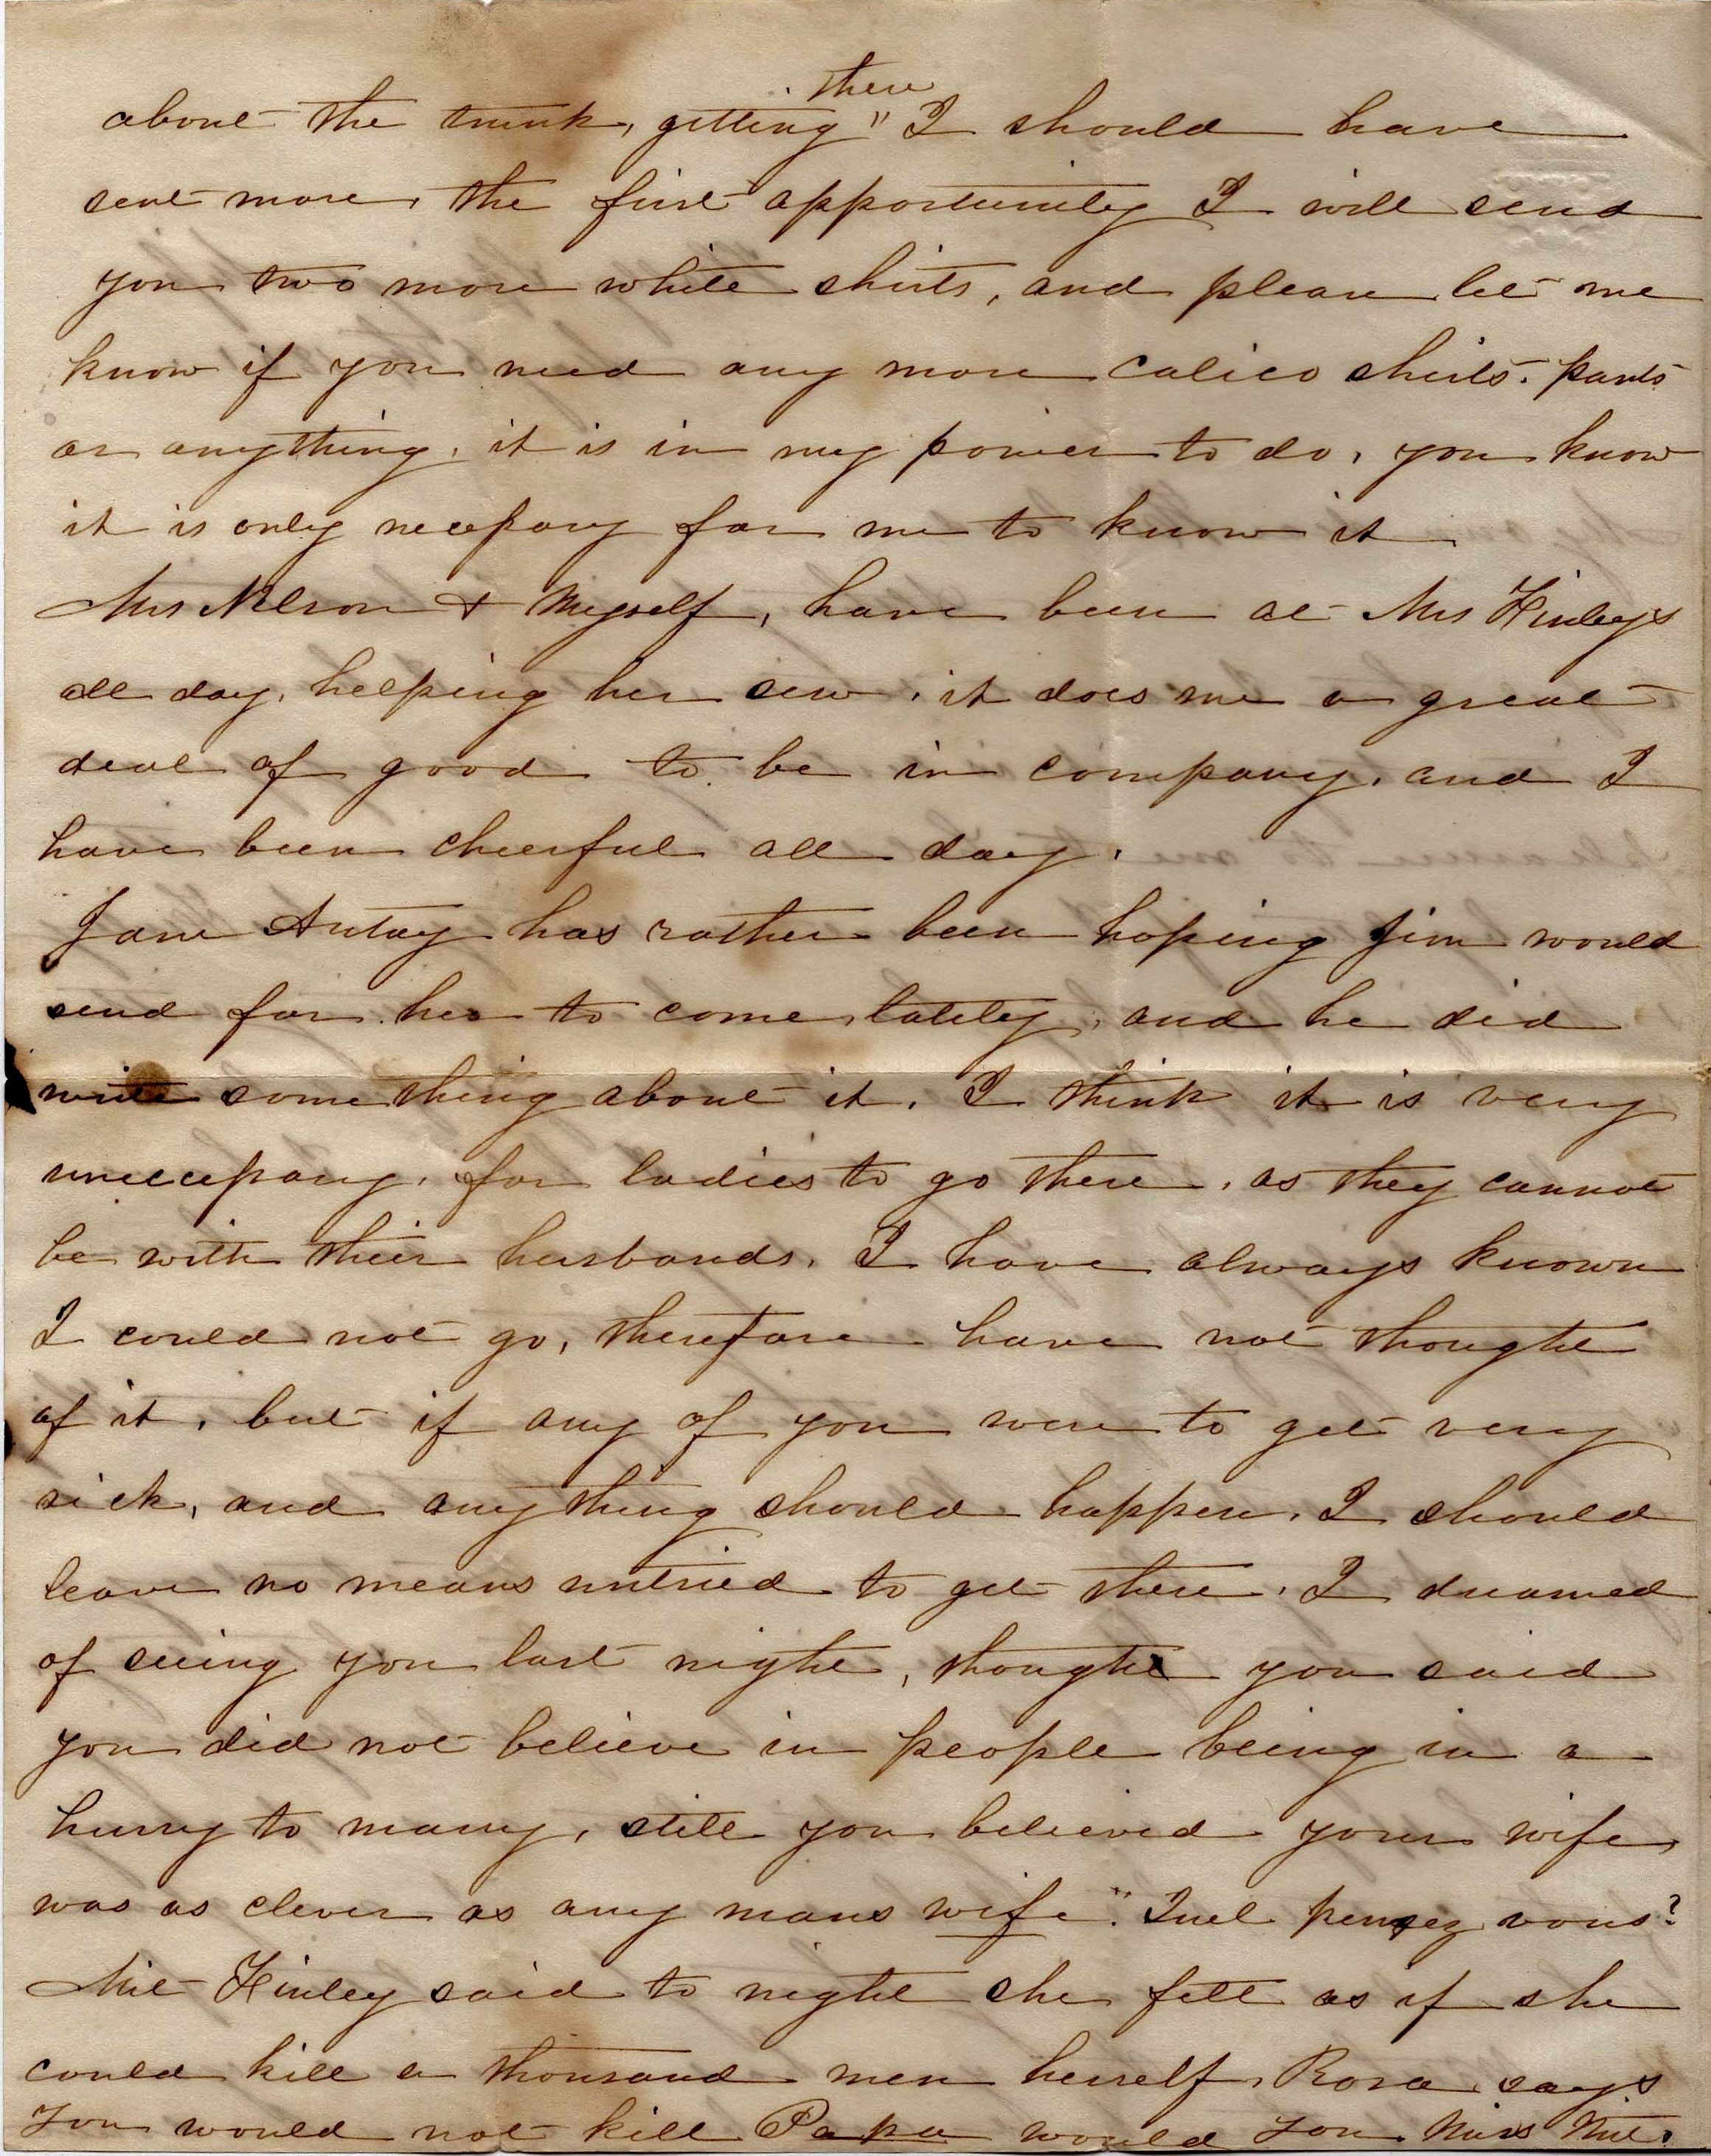 there
about the trunk, getting " I should have
sent more, the first opportunity I will send
you two more white shirts, and please let me
know if you need any more calico shirts. pants
or anything, it is in my power to do, you know
it is only necessary for me to know it
Mrs Nelson & Myself, have been at Mrs Finleys
all day, helping her sew, it does me a great
deal of good to be in company, and I
have been cheerful all day.
Jane Autay has rather been hoping Jim would
send for her to come lately, and he did
write something about it. I think it is very
unecessary, for ladies to go there, as they cannot
be with their husbands, I have always known
I could not go, therefore have not thought
of it, but if any of you were to get very
sick, and any thing should happen, I should
leave no means untried to get there. I dreamed
of seeing you last night, thought you said
you did not believe in people being in a
hurry to marry, still you believed your wife
was as clever as any mans wife". Quel pensez vous?
Mit Finley said to night she felt as if she
could kill a thousand men herself, Rosa says
You would not kill Papa would you Miss Mit.